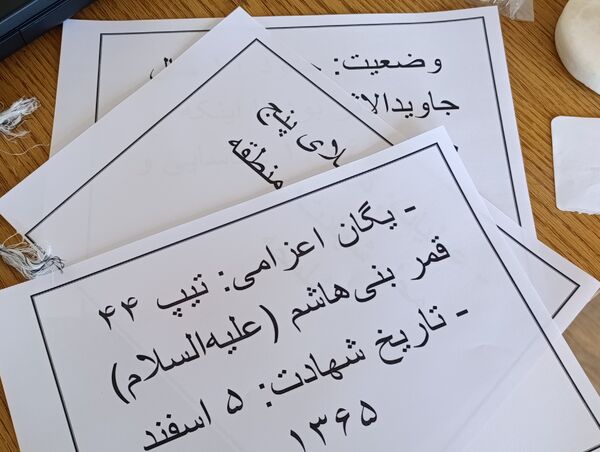 وضعیت:
جاویدالاثر
منطقه
- یگان اعزامی: تیپ ۴۴
قمر بنی‌هاشم (علیه‌السلام)
- تاریخ شهادت: ۵ اسفند
۱۳۶۵